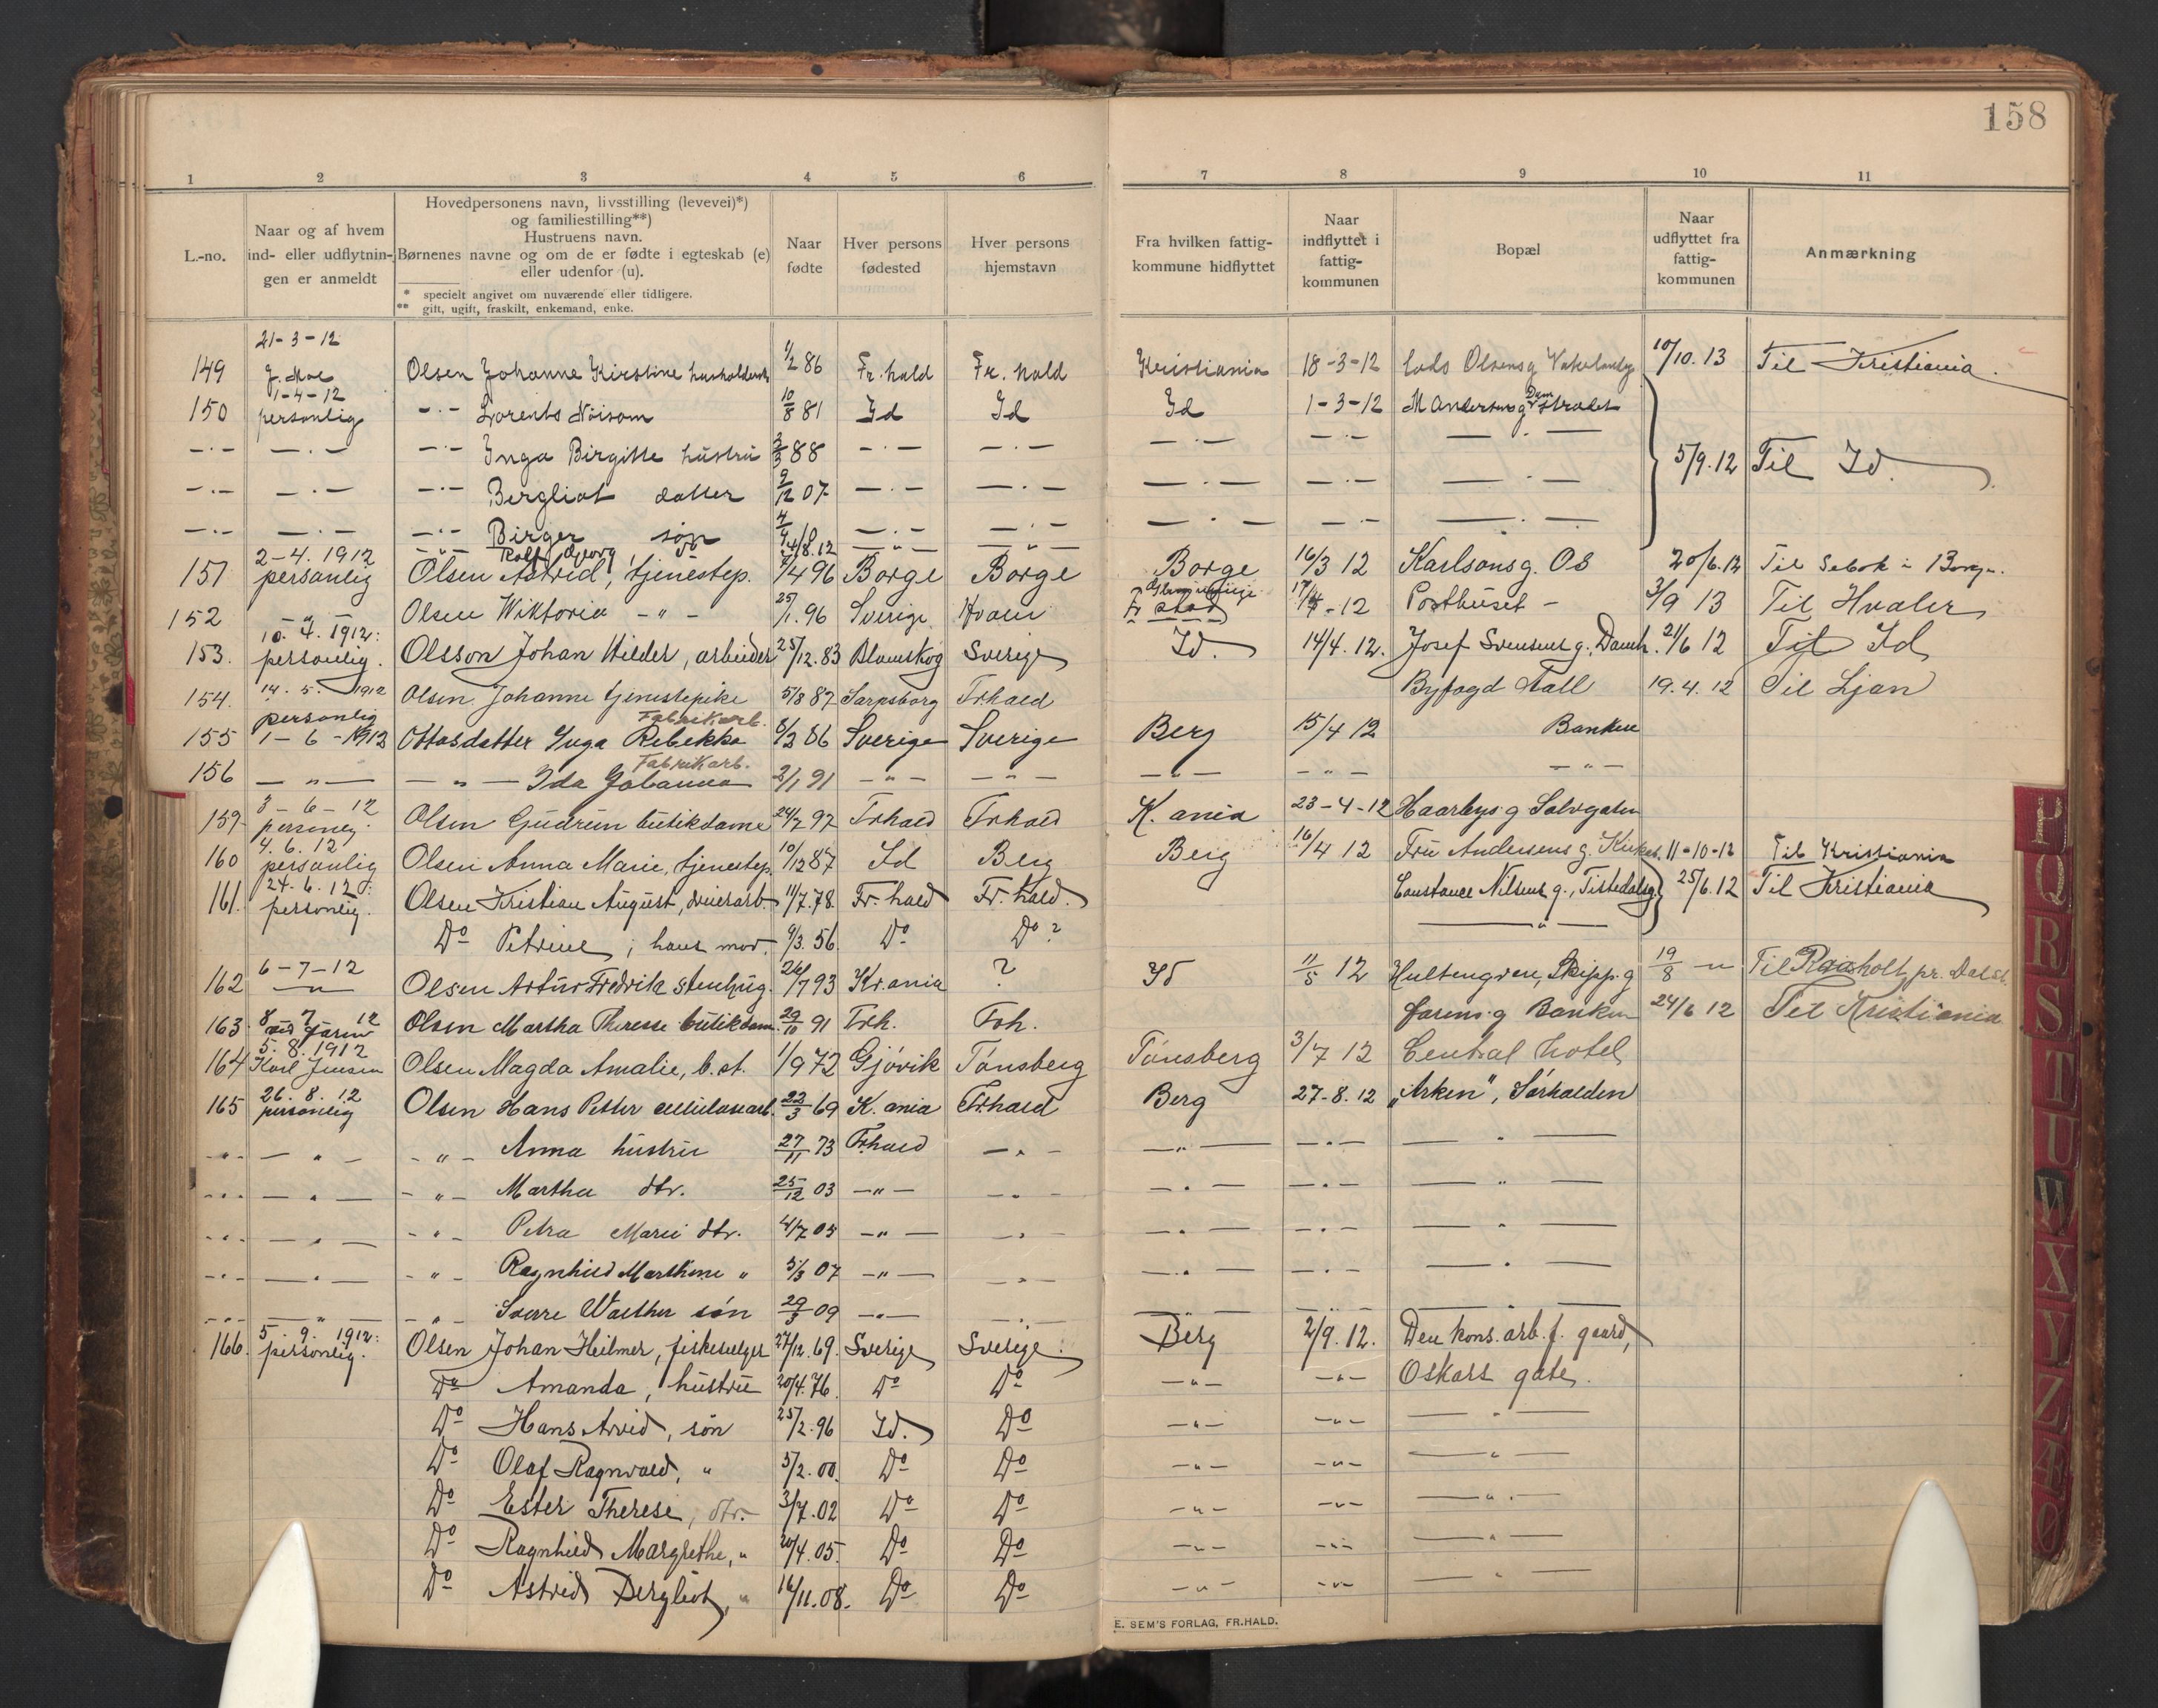 158
1 2 3 4 5 6 7 8 9 10 11
L.-no.
Naar og af hvem ind- eller udflytnin-gen er anmeldt
Hovedpersonens navn, livsstilling (levevei)*)
og familiestilling**)
Hustruens navn.
Børnenes navne og om de er fødte i egteskab (e)
eller udenfor (u).
* specielt angivet om nuværende eller tidligere.
** gift, ugift, fraskilt, enkemand, enke.
Naar fødte
Hver persons fødested
Hver persons hjemstavn
Fra hvilken fattig-kommune hidflyttet
Naar indflyttet i fattig-kommunen
Bopæl
Naar udflyttet fra fattig-kommunen
Anmærkning
21-3-12
149 J. Moe Olsen Johanne Kirstine 1/2 86 Fr.hald Fr.hald Kristiania 18-3-12 10/10.13 Til Kristiania.
1-4-12
150 personlig -"- Lorents Nöisom 10/8 81 Id Id Id 1-3-12 M Andersens g Damstrædet
-"- -"- -"- Inga Birgitte hustru 2/3 88 -"- -"- -"- -"- -"- 5/9.12 Til Id.
-"- -"- -"- Bergliot datter 9/12 07 -"- -"- -"- -"- -"-
-"- -"- -"- Birger søn -"- -"- -"- -"- -"-
-"- Rolf Georg 8.12 -"- -"-
2-4.1912
151 personlig Olsen Astrid, tjenestep. 7/4 96 Borge Borge Borge 16/3 12 Karlsons g. Os 20/6.12 Til Sebok i Borge.
152 -"- Olsen Wiktoria -"- 25/1.96 Sverige Hvaler Fr stad 17/4-12 Posthuset - 3/9 13 Til Hvaler
10.4.1912:
153. personlig. Olsson Johan Hilder, arbeider 25/12.83 Blomskog Sverige Id. 14/4.12. Josef Svensens g., Damh. 21/6 12 Til Id
154. 14.5.1912 Olsen Johanne tjenestepike 5/8 87 Sarpsborg Frhald Byfogd Fall 19.4.12 Til Ljan
personlig Fabrikarb.
155 1-6-1912 Ottosdatter Inga Rebekka 8/2 86 Sverige Sverige Berg 15/4 12 Banken
Fabrikarb.
156 -"- -"- Ida Johanna 2/1 91 -"- -"- -"- -"- -"-
3-6-12
159 personlig. Olsen Gudrun butikdame 24/7 97 Frhald Frhald K.ania 23-4-12 Haarbys g Salvgaten
4.6.12
160 personlig Olsen Anna Marie, tjenestep. 10/12 87 Id Berg Berg 16/4 12 Fru Andersens g. Kirkest. 11-10-12 Til Kristiania
24.6.12:
161. personlig. Olsen Kristian August, 11/7.78. Fr.hald Fr.hald. Constance Nilsens g., Tistedalsg. 25/6.12 Til Kristiania
Do Petrine, hans mor. 9/3.56. Do Do? -"-
6-7-12
162 -"- Olsen Artur Fredrik stenhug. 26/7 93 Kr.ania ? Id 11/5 12 Hultengren, Skipp.g 19/8 -"- Til Raaholt pr. Dal st.
8 7 12
163 Olsen Martha Therese butikdam. 29/10 91 Frh. Frh. Farens g Banken 24/6 12 Til Kristiania
5.8.1912
164 Karl Jensen Olsen Magda Amalie, b.st. 1/9 72 Gjövik Tönsberg Tönsberg 3/7 12 Central Hotel
26.8.12
165 personlig Olsen Hans Petter cellulosearb. 22/3 69 K.ania Frhald Berg 27-8.12 „Arken", Sörhalden
-"- -"- -"- Anna hustru 27/11 73 Frhald -"- -"- -"- -"-
-"- -"- -"- Martha dtr. 25/12 03 -"- -"- -"- -"- -"-
-"- -"- -"- Petra Marie dtr. 4/7 05 -"- -"- -"- -"- -"-
-"- -"- -"- Ragnhild Marthine " 5/3 07 -"- -"- -"- -"- -"-
-"- -"- -"- Sverre Walther sön 29/3 09 -"- -"- -"- -"- -"-
5.9.1912:
166. personlig. Olsen Johan Heilmer, fiskesælger 27/12.69. Sverige Sverige. Berg 2/9.12. Den kons. arb. f. gaard,
Do Amanda, hustru 20/4.76. Do Do -"- -"- Oskars gate.
Do Hans Arvid, sön 25/2.96 Id. Do -"- -"- -"-
Do Olaf Ragnvald, " 5/2.00. Do Do -"- -"- -"-
Do Ester Therese, dtr. 3/7.02 Do Do -"- -"- -"-
Do Ragnhild Margrethe, " 20/4.05. Do Do -"- -"- -"-
Do Astrid Bergliot, " 16/11.08. Do Do -"- -"- -"-
E. SEM'S FORLAG, FR.HALD.
P
Q
R
S
T
U
W
X
Y
Z
Æ
Ø